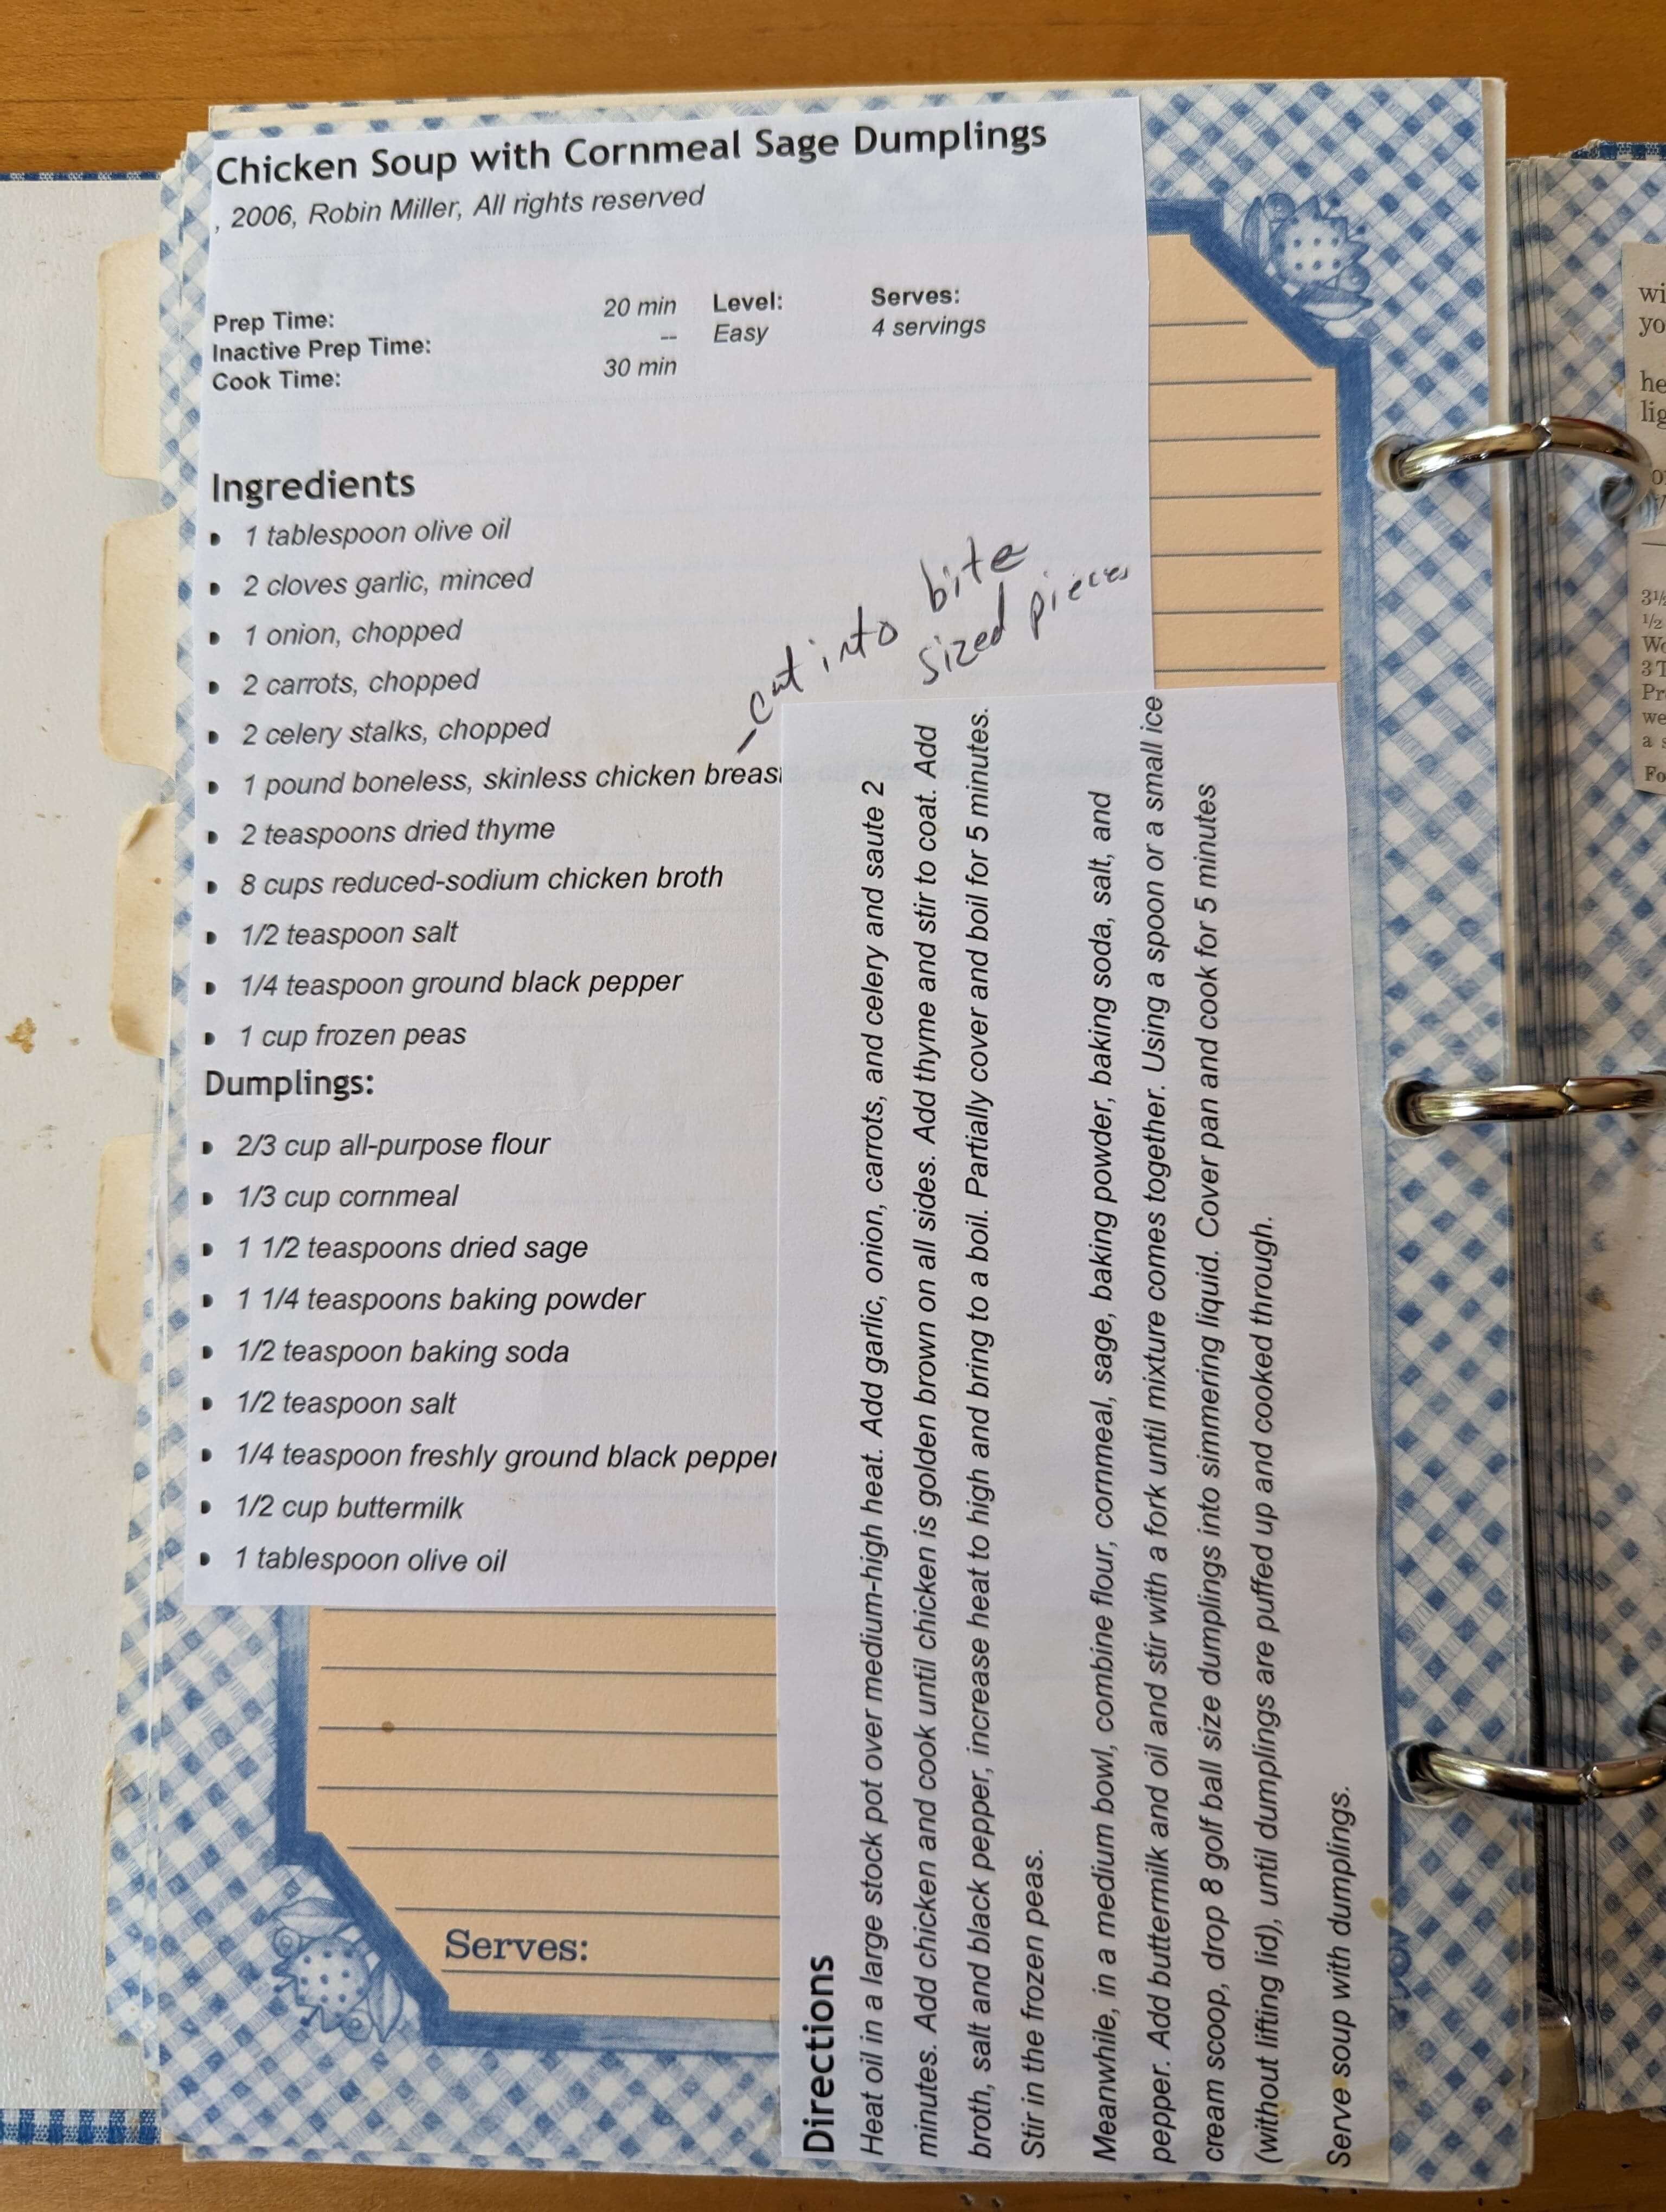 Chicken Soup with Cornmeal Sage Dumplings
, 2006, Robin Miller, All rights reserved
Prep Time: 20 min
Inactive Prep Time: --
Cook Time: 30 min
Level:
Easy
Serves:
4 servings
Ingredients
1 tablespoon olive oil
2 cloves garlic, minced
1 onion, chopped
2 carrots, chopped
2 celery stalks, chopped
1 pound boneless, skinless chicken breast
- cut into bite
sized pieces
2 teaspoons dried thyme
8 cups reduced-sodium chicken broth
1/2 teaspoon salt
1/4 teaspoon ground black pepper
1 cup frozen peas
Dumplings:
2/3 cup all-purpose flour
1/3 cup cornmeal
1 1/2 teaspoons dried sage
1 1/4 teaspoons baking powder
1/2 teaspoon baking soda
1/2 teaspoon salt
1/4 teaspoon freshly ground black pepper
1/2 cup buttermilk
1 tablespoon olive oil
Serves:
Directions
Heat oil in a large stock pot over medium-high heat. Add garlic, onion, carrots, and celery and saute 2
minutes. Add chicken and cook until chicken is golden brown on all sides. Add thyme and stir to coat. Add
broth, salt and black pepper, increase heat to high and bring to a boil. Partially cover and boil for 5 minutes.
Stir in the frozen peas.
Meanwhile, in a medium bowl, combine flour, cornmeal, sage, baking powder, baking soda, salt, and
pepper. Add buttermilk and oil and stir with a fork until mixture comes together. Using a spoon or a small ice
cream scoop, drop 8 golf ball size dumplings into simmering liquid. Cover pan and cook for 5 minutes
(without lifting lid), until dumplings are puffed up and cooked through.
Serve soup with dumplings.
wi
yo
he
lig
3½
½
Wo
3 T
Pr
we
a s
Fo